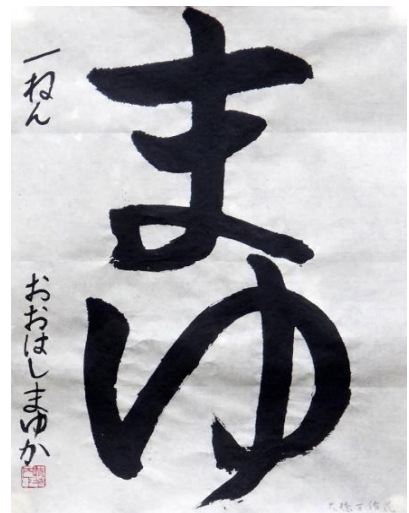 まゆ
一ねん
おおはしまゆか